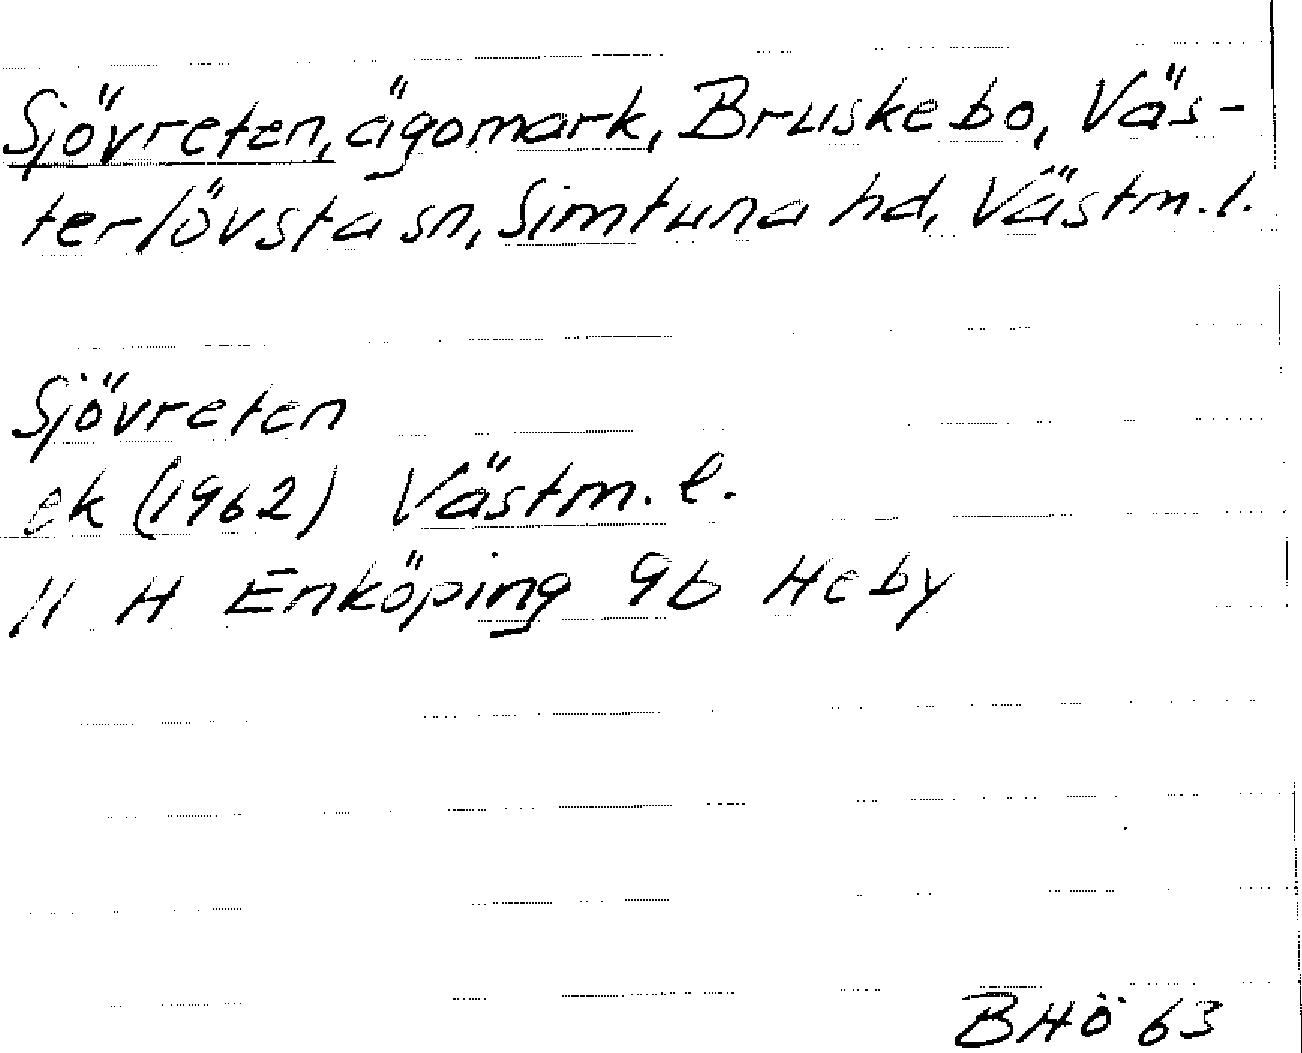 Sjövreten, ägomark, Bruskebo, Väs-
terlövsta sn, Simtuna hd, Västm. l.
Sjövreten
ek (1962) Västm. l.
11 H Enköping 9b Heby
BHÖ 63